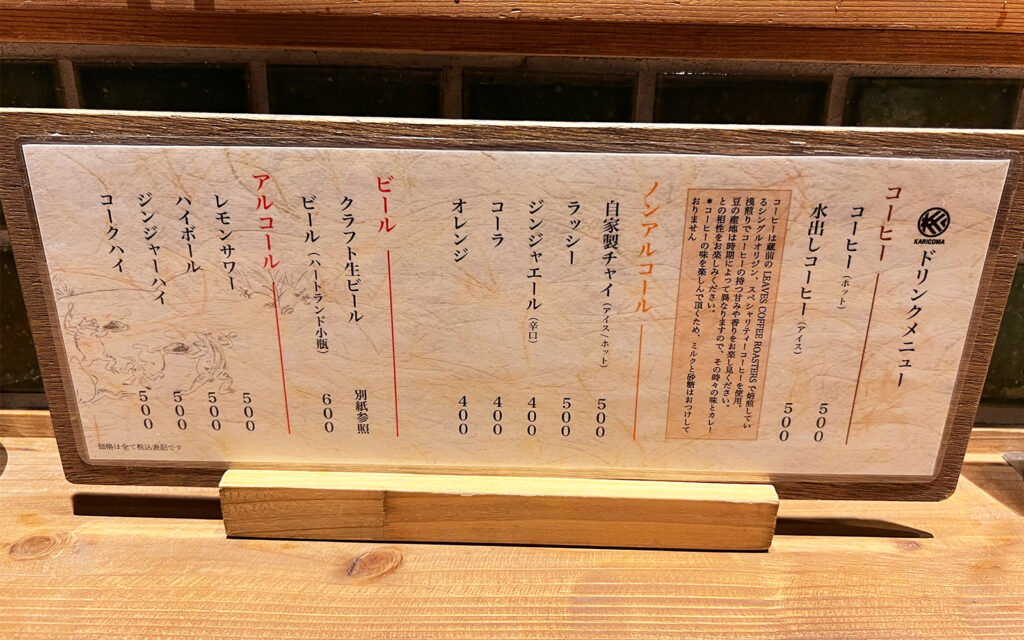 KARICOMA
ドリンクメニュー
コーヒー
コーヒー（ホット） 500
水出しコーヒー（アイス） 500
コーヒーは蔵前の LEAVES COFFEE ROASTERS で焙煎してい
るシングルオリジン、スペシャリティーコーヒーを使用。
浅煎りでコーヒーの持つ甘みや香りをお楽し見ください。
豆の産地は時期によって異なりますので、その時々の味とカレー
との相性をお楽しみください。
＊コーヒーの味を楽しんで頂くため、ミルクと砂糖はおつけして
おりません
ノンアルコール
自家製チャイ（アイス／ホット） 500
ラッシー 500
ジンジャエール（辛口） 400
コーラ 400
オレンジ 400
ビール
クラフト生ビール 別紙参照
ビール（ハートランド小瓶） 600
アルコール
レモンサワー 500
ハイボール 500
ジンジャーハイ 500
コークハイ 500
価格は全て税込表記です